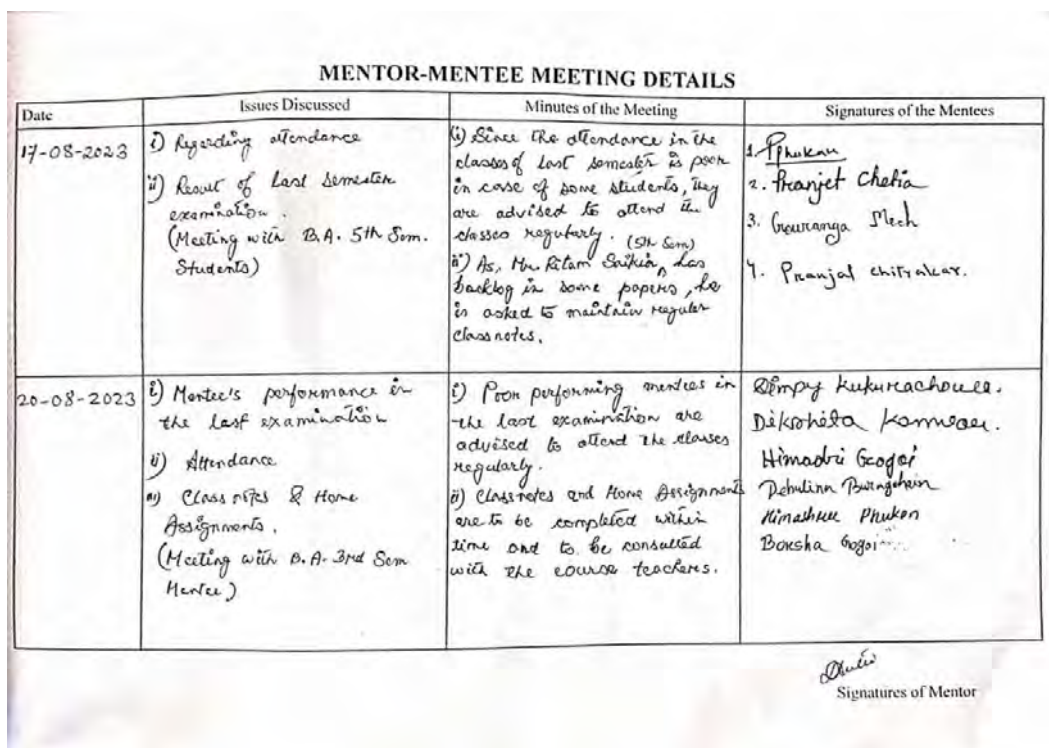 MENTOR-MENTEE MEETING DETAILS
Date
Issues Discussed
Minutes of the Meeting
Signatures of the Mentees
17-08-2023
i) Regarding attendance
ii) Result of Last Semester
examination.
(Meeting with B.A. 5th Sem.
Students)
(i) Since the attendance in the
classes of last semester is poor
in case of some students, they
are advised to attend the
classes regularly.
(5th Sem)
ii) As, Mr. Ritam Saikia, has
backlog in some papers, he
is asked to maintain regular
class notes.
1. PPhukan
2. Pranjet Chetia
3. Gouranga Mech
4. Pranjal chitrakar.
20-08-2023
i) Mentee's performance in
the last examination
ii) Attendance
iii) Class notes & Home
Assignments.
(Meeting with B.A. 3rd Sem
Mentee)
i) Poor performing mentees in
the last examination are
advised to attend the classes
regularly.
ii) Class notes and Home Assignments
are to be completed within
time and to be consulted
with the course teachers.
Himadri Gogoi
Himashree Phukon
Borsha Gogoi
Signatures of Mentor